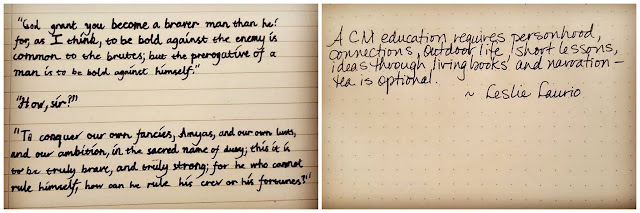 "God grant you become a braver man than he!
for, as I think, to be bold against the enemy is
common to the brutes; but the prerogative of a
man is to be bold against himself."
"How, sir?"
"To conquer our own fancies, Amyas, and our own lusts,
and our ambition, in the sacred name of duty; this it is
to be truly brave, and truly strong; for he who cannot
rule himself, how can he rule his crew or his fortunes?"
A CM education requires personhood,
connections, outdoor life, short lessons,
ideas through living books and narration –
tea is optional.
~ Leslie Laurio